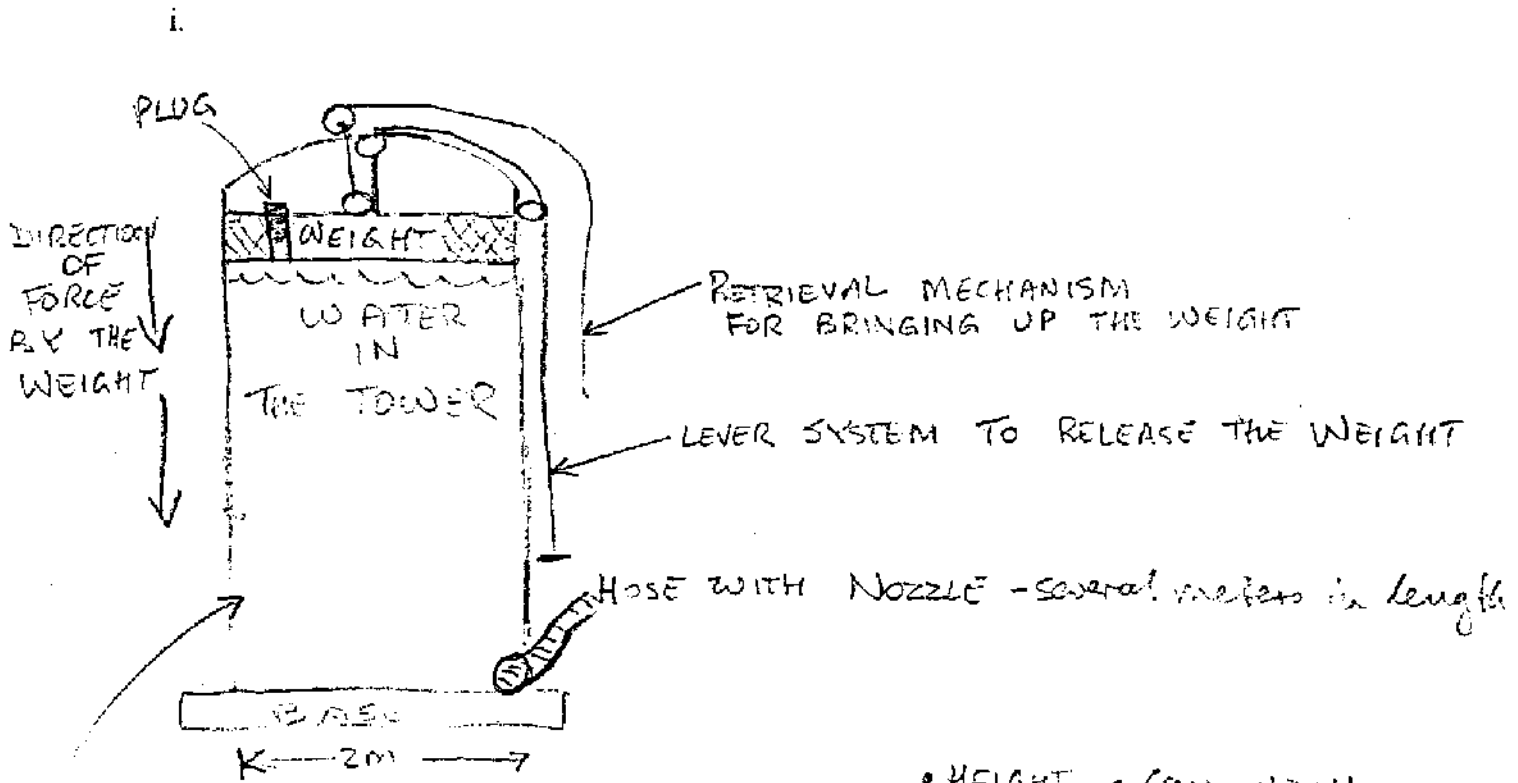 i.
PLUG
DIRECTION
OF
FORCE
BY THE
WEIGHT
WEIGHT
WATER
IN
THE TOWER
RETRIEVAL MECHANISM
FOR BRINGING UP THE WEIGHT
LEVER SYSTEM TO RELEASE THE WEIGHT
HOSE WITH NOZZLE - several meters in length
BASE
2m
• HEIGHT